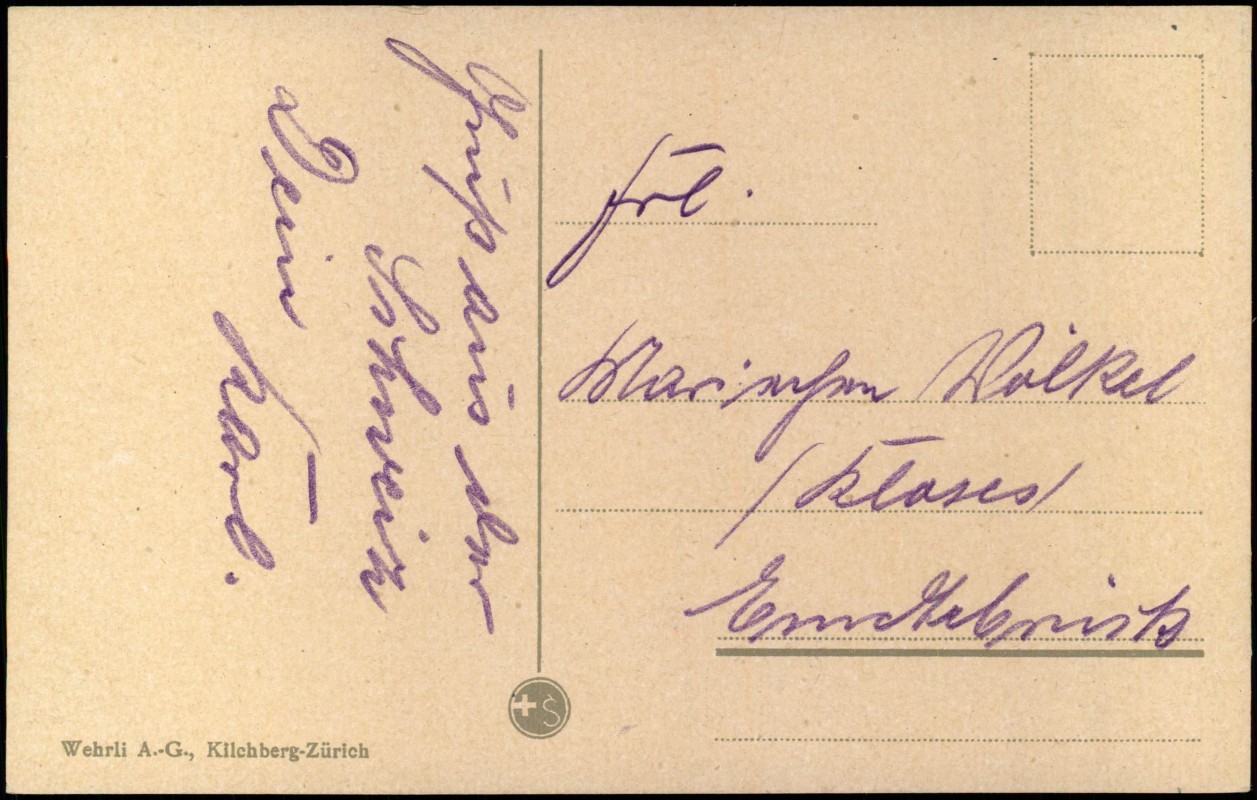 Gruß aus der
Schweiz
Dein Karl.
Frl.
Mariechen Völkel
/ Klases /
Erndtebrück
Wehrli A.-G., Kilchberg-Zürich
+S